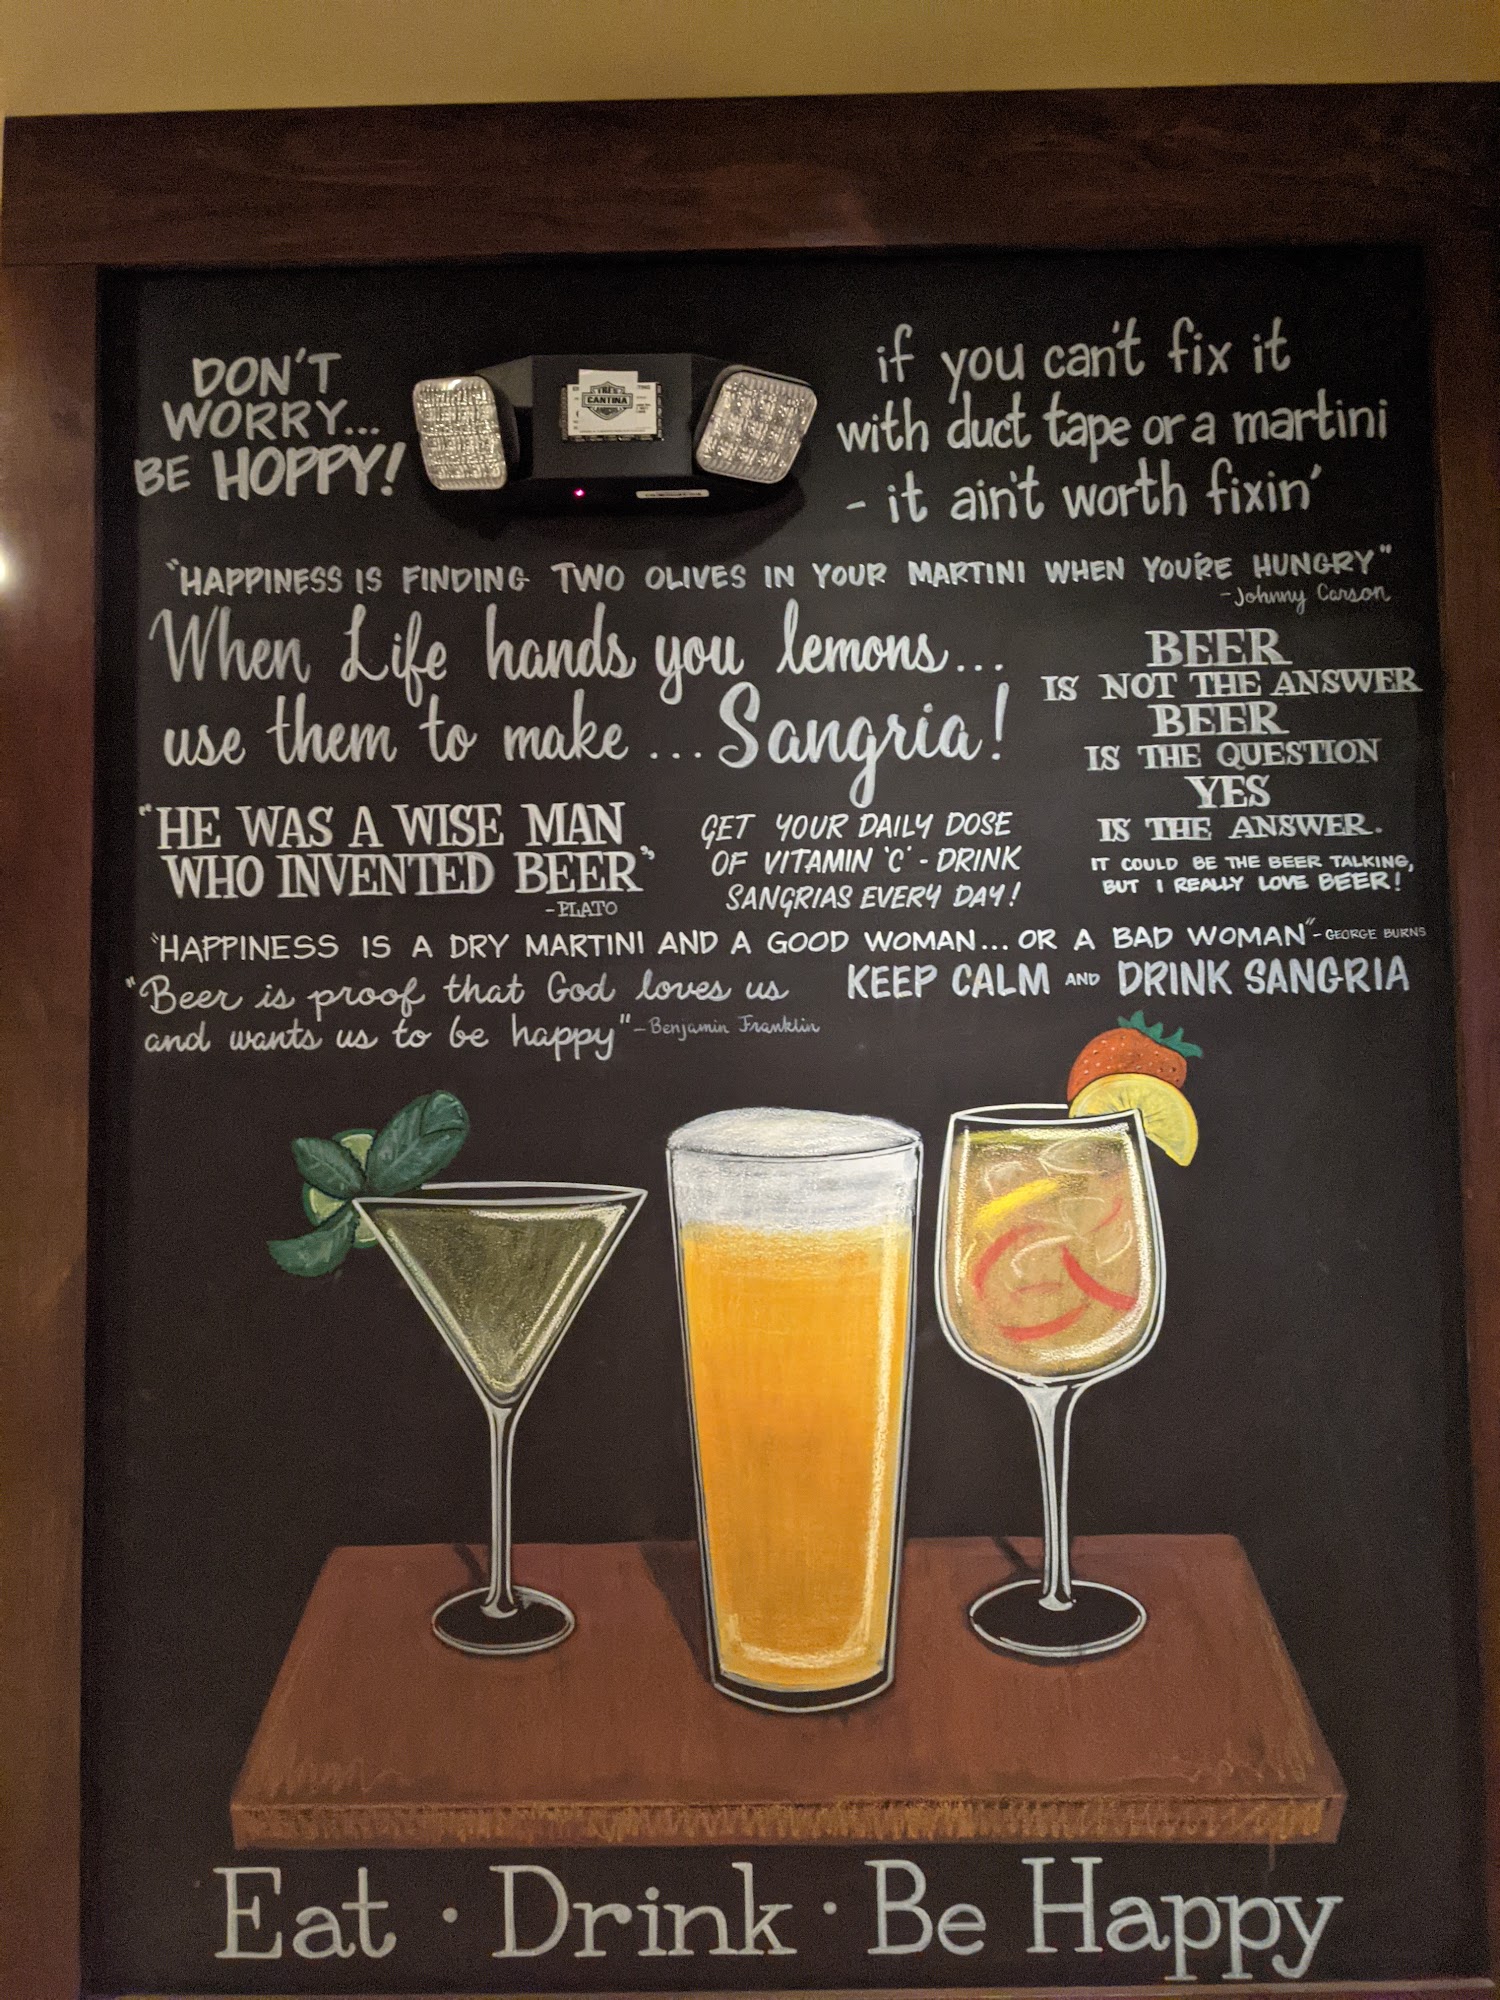 DON'T
WORRY...
BE HOPPY!
CANTINA
if you can't fix it
with duct tape or a martini
- it ain't worth fixin'
"HAPPINESS IS FINDING TWO OLIVES IN YOUR MARTINI WHEN YOU'RE HUNGRY"
-Johnny Carson
When Life hands you lemons...
use them to make ... Sangria!
BEER
IS NOT THE ANSWER
BEER
IS THE QUESTION
YES
IS THE ANSWER.
"HE WAS A WISE MAN
WHO INVENTED BEER"
-PLATO
GET YOUR DAILY DOSE
OF VITAMIN 'C' - DRINK
SANGRIAS EVERY DAY!
IT COULD BE THE BEER TALKING,
BUT I REALLY LOVE BEER!
"HAPPINESS IS A DRY MARTINI AND A GOOD WOMAN... OR A BAD WOMAN" - GEORGE BURNS
"Beer is proof that God loves us
and wants us to be happy" - Benjamin Franklin
KEEP CALM AND DRINK SANGRIA
Eat · Drink · Be Happy